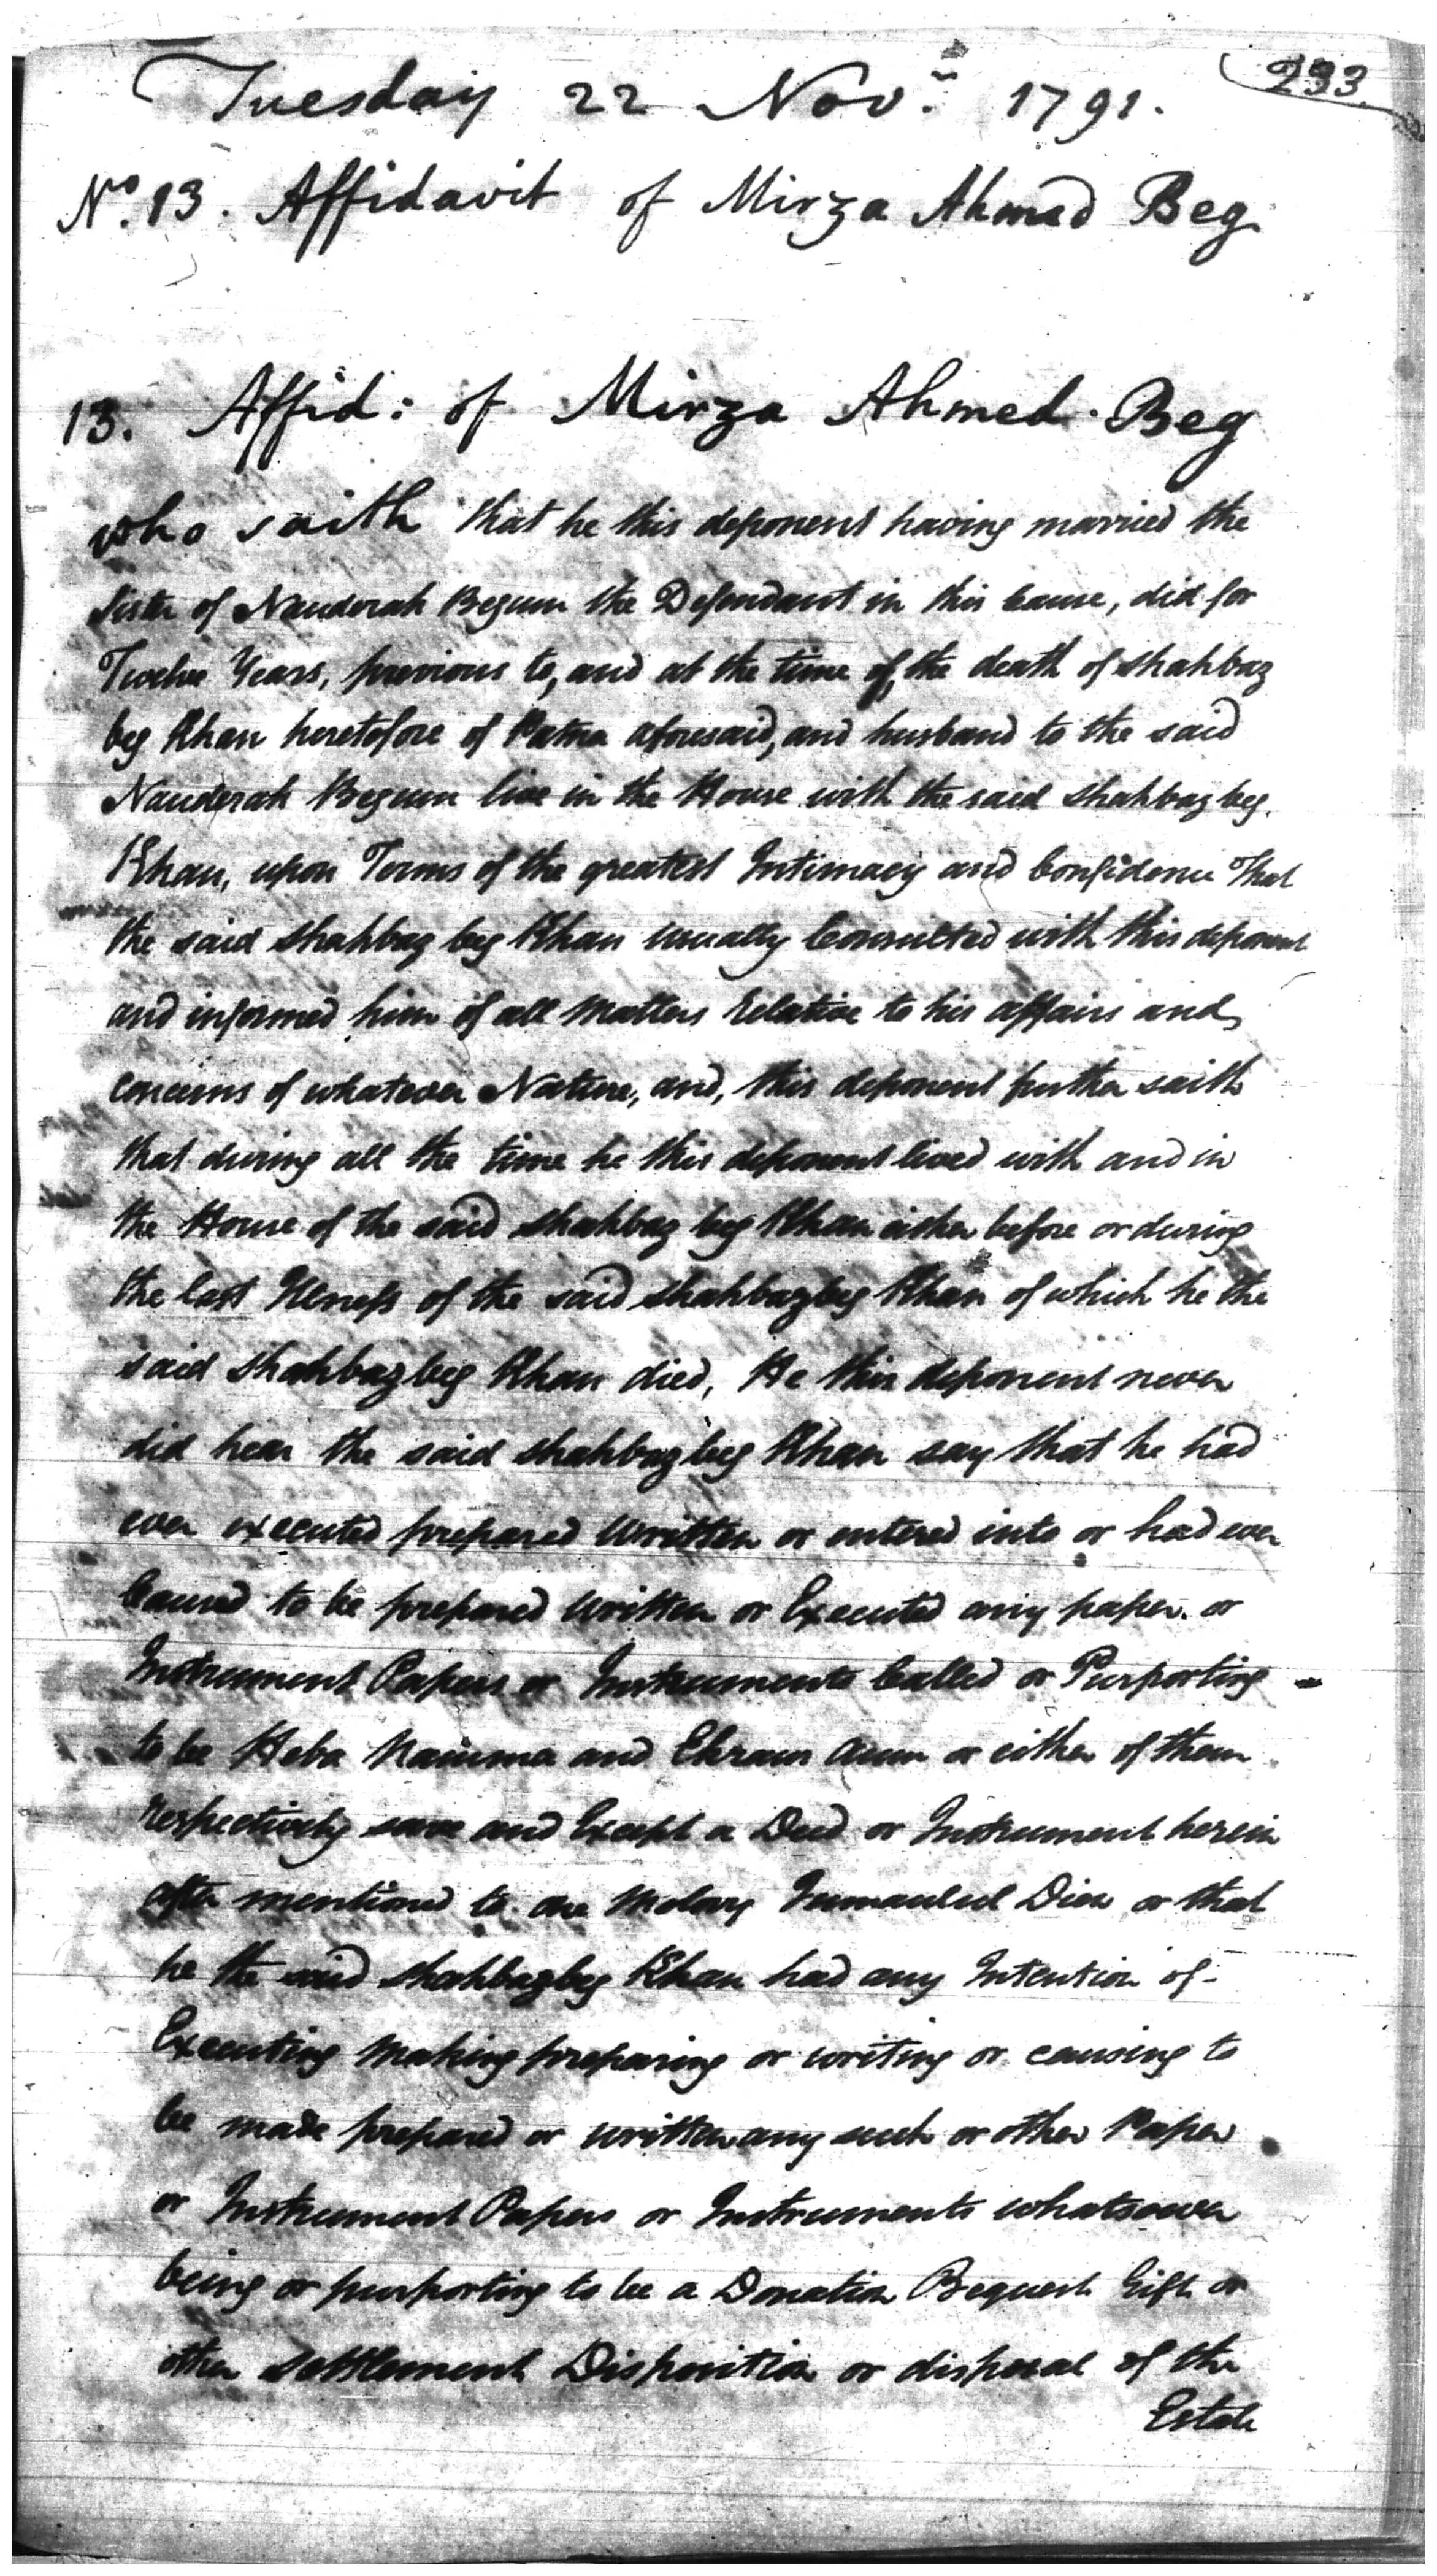 233
Tuesday 22 Nov.r 1791.
No. 13. Affidavit of Mirza Ahmed Beg
13. Affid: of Mirza Ahmed Beg
who saith that he this deponent having married the
Sister of Nauderah Begum the Defendant in this Cause, did for
Twelve Years, previous to, and at the time of, the death of Shahbaz
beg Khan heretofore of Patna aforesaid, and husband to the said
Nauderah Begum live in the House with the said Shahbaz beg
Khan, upon Terms of the greatest Intimacy and Confidence That
the said Shahbaz beg Khan usually Consulted with this deponent
and informed him of all Matters Relative to his affairs and
concerns of whatever Nature, and, this deponent further saith
that during all the time he this deponent lived with and in
the House of the said Shahbaz beg Khan either before or during
the last Illness of the said Shahbaz beg Khan of which he the
said Shahbaz beg Khan died, He this deponent never
did hear the said Shahbaz beg Khan say that he had
ever executed prepared Written or entered into or had ever
Caused to be prepared written or Executed any paper or
Instrument Papers or Instruments Called or Purporting
to be Heba Namma and Ekrar or either of them
respectively save and Except a Deed or Instrument herein
after mentioned to one Molavy Dien or that
he the said Shahbaz beg Khan had any Intention of
Executing Making preparing or writing or causing to
be made prepared or written any such or other Paper
or Instrument Papers or Instruments whatsoever
being or purporting to be a Donation Bequest Gift or
other Settlement Disposition or disposal of the
Estate